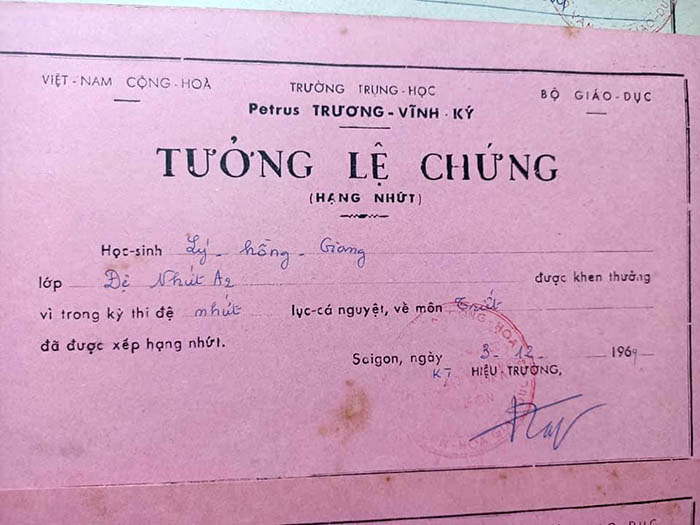 VIỆT-NAM CỘNG-HOÀ
TRƯỜNG TRUNG-HỌC
Petrus TRƯƠNG-VĨNH-KÝ
BỘ GIÁO-DỤC
TƯỞNG LỆ CHỨNG
(HẠNG NHỨT)
Học-sinh Lý-Hồng-Giang
lớp Đệ Nhứt A2 được khen thưởng
vì trong kỳ thi đệ nhứt lục-cá nguyệt, về môn Triết
đã được xếp hạng nhứt.
Saigon, ngày 3-12-1969
KT HIỆU-TRƯỞNG,